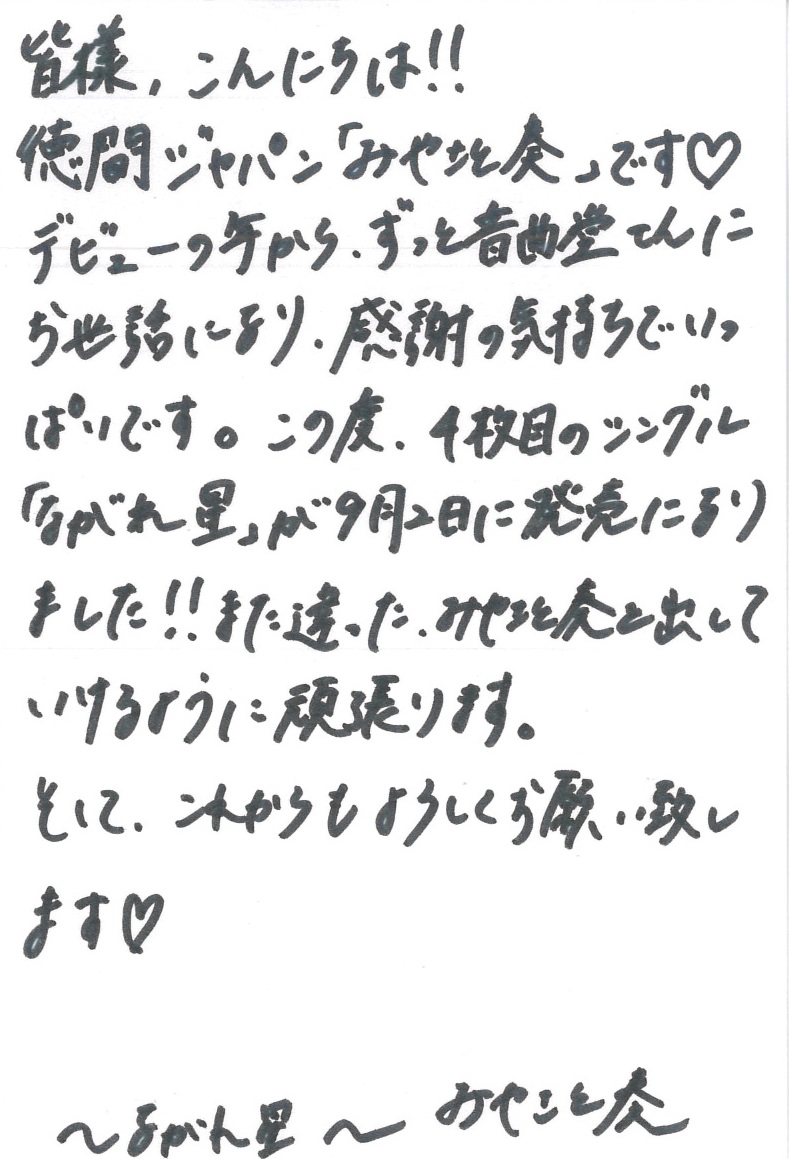 皆様、こんにちは!!
徳間ジャパン「みやさと奏」です♡
デビューの年から、ずっと音曲堂さんに
お世話になり、感謝の気持ちでいっ
ぱいです。この度、4枚目のシングル
「ながれ星」が9月2日に発売になり
ました!!また違った、みやさと奏を出して
いけるように頑張ります。
そして、これからもよろしくお願い致し
ます♡
〜ながれ星〜 みやさと奏